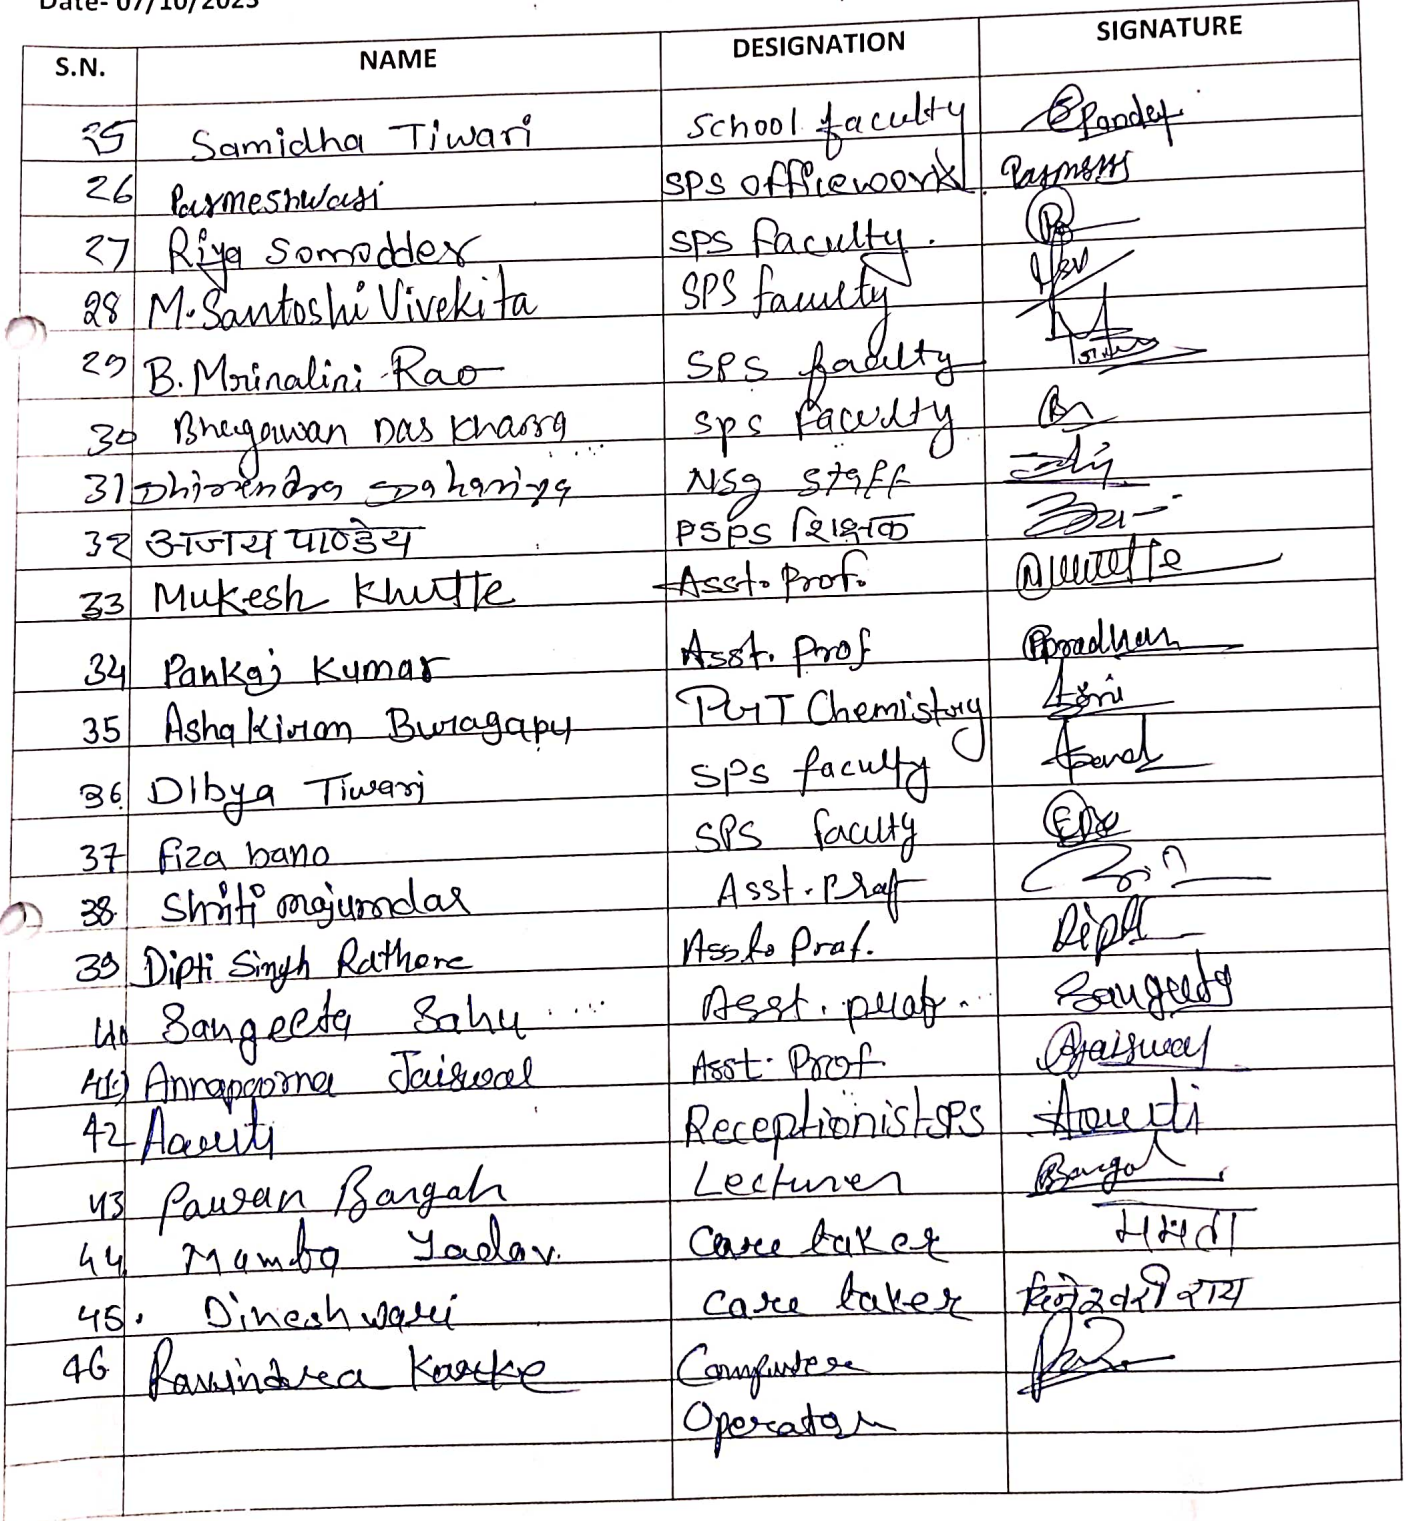 Date- 07/10/2023
S.N. NAME DESIGNATION SIGNATURE
25 Samidha Tiwari School faculty Pandey
26 Parmeshwari SPS officework
27 Riya Somodder SPS Faculty.
28 M. Santoshi Vivekita SPS faculty
29 B. Mrinalini Rao SPS faculty
30 Bhagawan Das Kharra SPS Faculty
31 Dhirendra Sahariya NSg staff
32 अजय पाण्डेय PSPS शिक्षक
33 Mukesh Khutte Asst. Prof.
34 Pankaj Kumar Asst. Prof Pradhan
35 Asha Kiran Buragapu PGT Chemistry
36. Dibya Tiwari SPS faculty
37 Fiza bano SPS faculty
38. Shriti majumdar Asst. Prof
39 Dipti Singh Rathore Asst. Prof. Dipti
40 Sangeeta Sahu Asst. prof. Sangeeta
41) Annapoorna Jaiswal Asst. Prof. Jaiswal
42 Aarti Receptionist SPS Aarti
43 Pawan Bargah Lecturer Bargah
44. Mamta Yadav. Care taker ममता
45. Dineshwari Care taker दिनेश्वरी राय
46 Ravindra Karke Computer
Operator